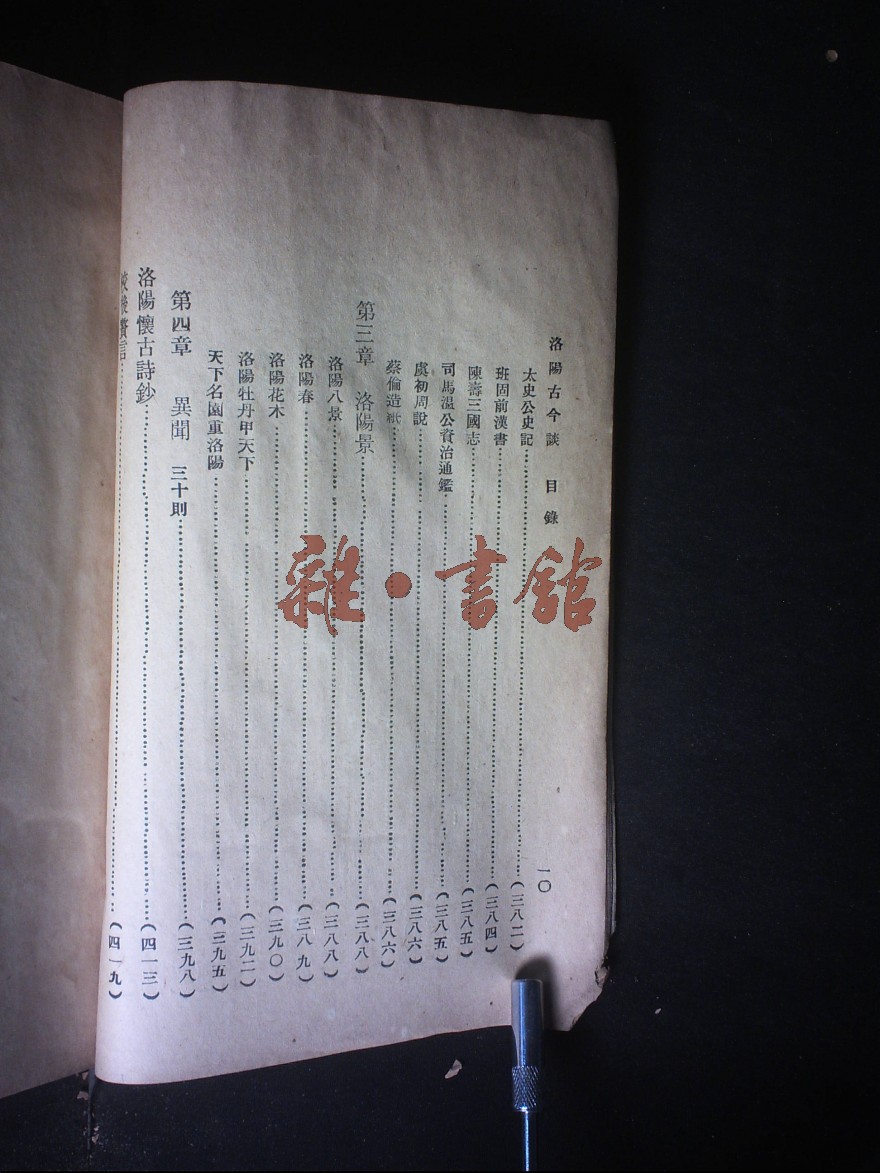 洛陽古今談 目錄 一〇
太史公史記……(三八二)
班固前漢書……(三八四)
陳壽三國志……(三八五)
司馬溫公資治通鑑……(三八五)
虞初周說……(三八六)
蔡倫造紙……(三八六)
第三章 洛陽景……(三八八)
洛陽八景……(三八八)
洛陽春……(三八九)
洛陽花木……(三九〇)
洛陽牡丹甲天下……(三九二)
天下名園重洛陽……(三九五)
第四章 異聞 三十則……(三九八)
洛陽懷古詩鈔……(四一三)
後贅言……(四一九)
雜·書館